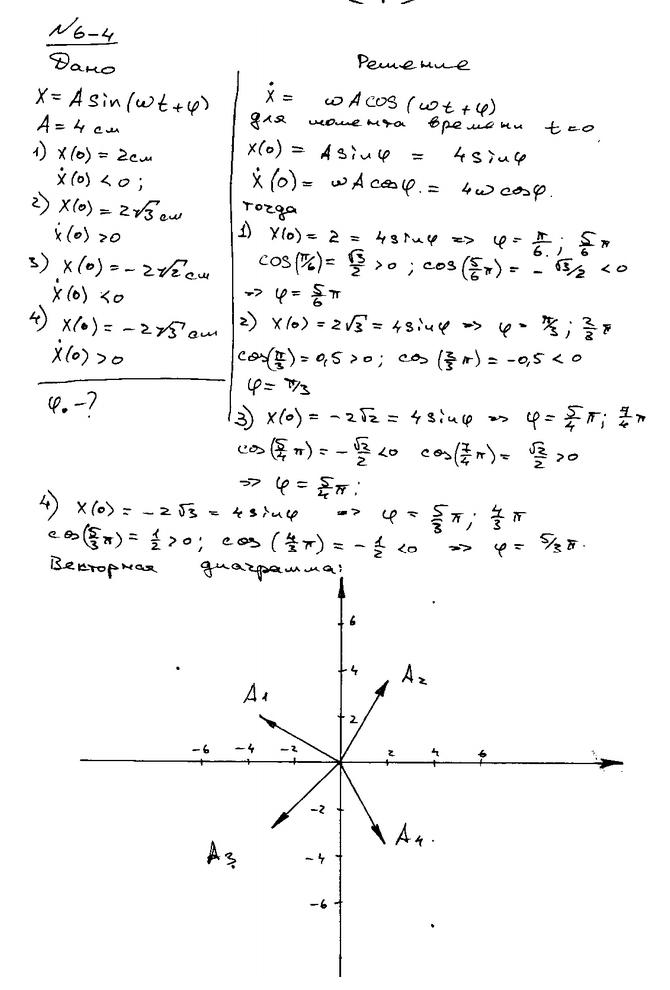 №6-4
Дано
X = A sin(ωt+φ)
A = 4 см
1) X(0) = 2см
Ẋ(0) < 0;
2) X(0) = 2√3 см
Ẋ(0) > 0
3) X(0) = -2√2 см
Ẋ(0) < 0
4) X(0) = -2√3 см
Ẋ(0) > 0
φ. -?
Решение
Ẋ = ωA cos(ωt+φ)
для момента времени t=0
X(0) = A sinφ = 4 sinφ
Ẋ(0) = ωA cosφ. = 4ω cosφ.
тогда
1) X(0) = 2 = 4 sinφ => φ = π/6; 5/6 π
cos(π/6) = √3/2 > 0; cos(5/6 π) = -√3/2 < 0
=> φ = 5/6 π
2) X(0) = 2√3 = 4 sinφ => φ = π/3; 2/3 π
cos(π/3) = 0,5 > 0; cos(2/3 π) = -0,5 < 0
φ = π/3
3) X(0) = -2√2 = 4 sinφ => φ = 5/4 π; 7/4 π
cos(5/4 π) = -√2/2 < 0 cos(7/4 π) = √2/2 > 0
=> φ = 5/4 π;
4) X(0) = -2√3 = 4 sinφ => φ = 5/3 π; 4/3 π
cos(5/3 π) = 1/2 > 0; cos(4/3 π) = -1/2 < 0 => φ = 5/3 π.
Векторная диаграмма:
6
4
A2
A1
2
-6 -4 -2 2 4 6
-2
A3
A4
-4
-6